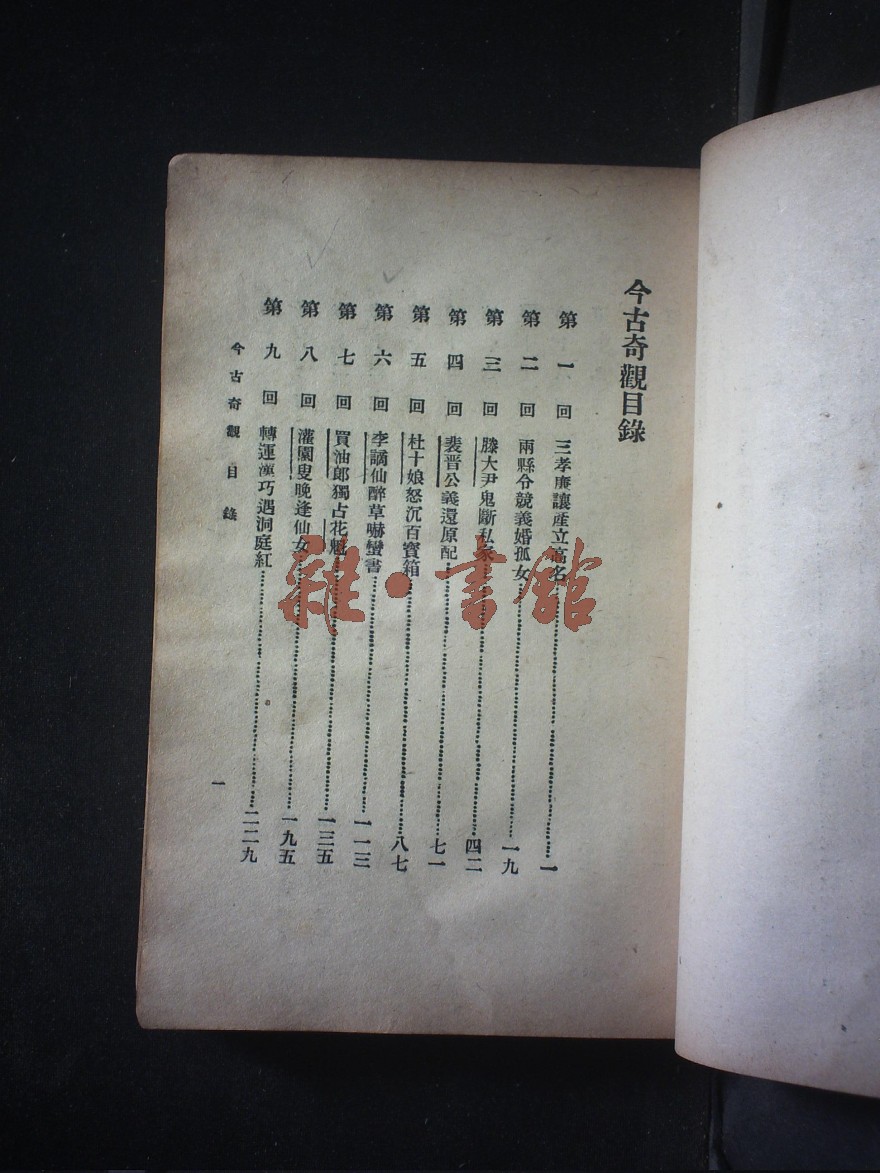 今古奇觀目錄
第一回 三孝廉讓產立高名……一
第二回 兩縣令競義婚孤女……一九
第三回 滕大尹鬼斷私家……四二
第四回 裴晉公義還原配……七一
第五回 杜十娘怒沉百寶箱……八七
第六回 李謫仙醉草嚇蠻書……一一三
第七回 買油郎獨占花魁……一三五
第八回 灌園叟晚逢仙女……一九五
第九回 轉運漢巧遇洞庭紅……二二九
今古奇觀目錄
一
雜·書館